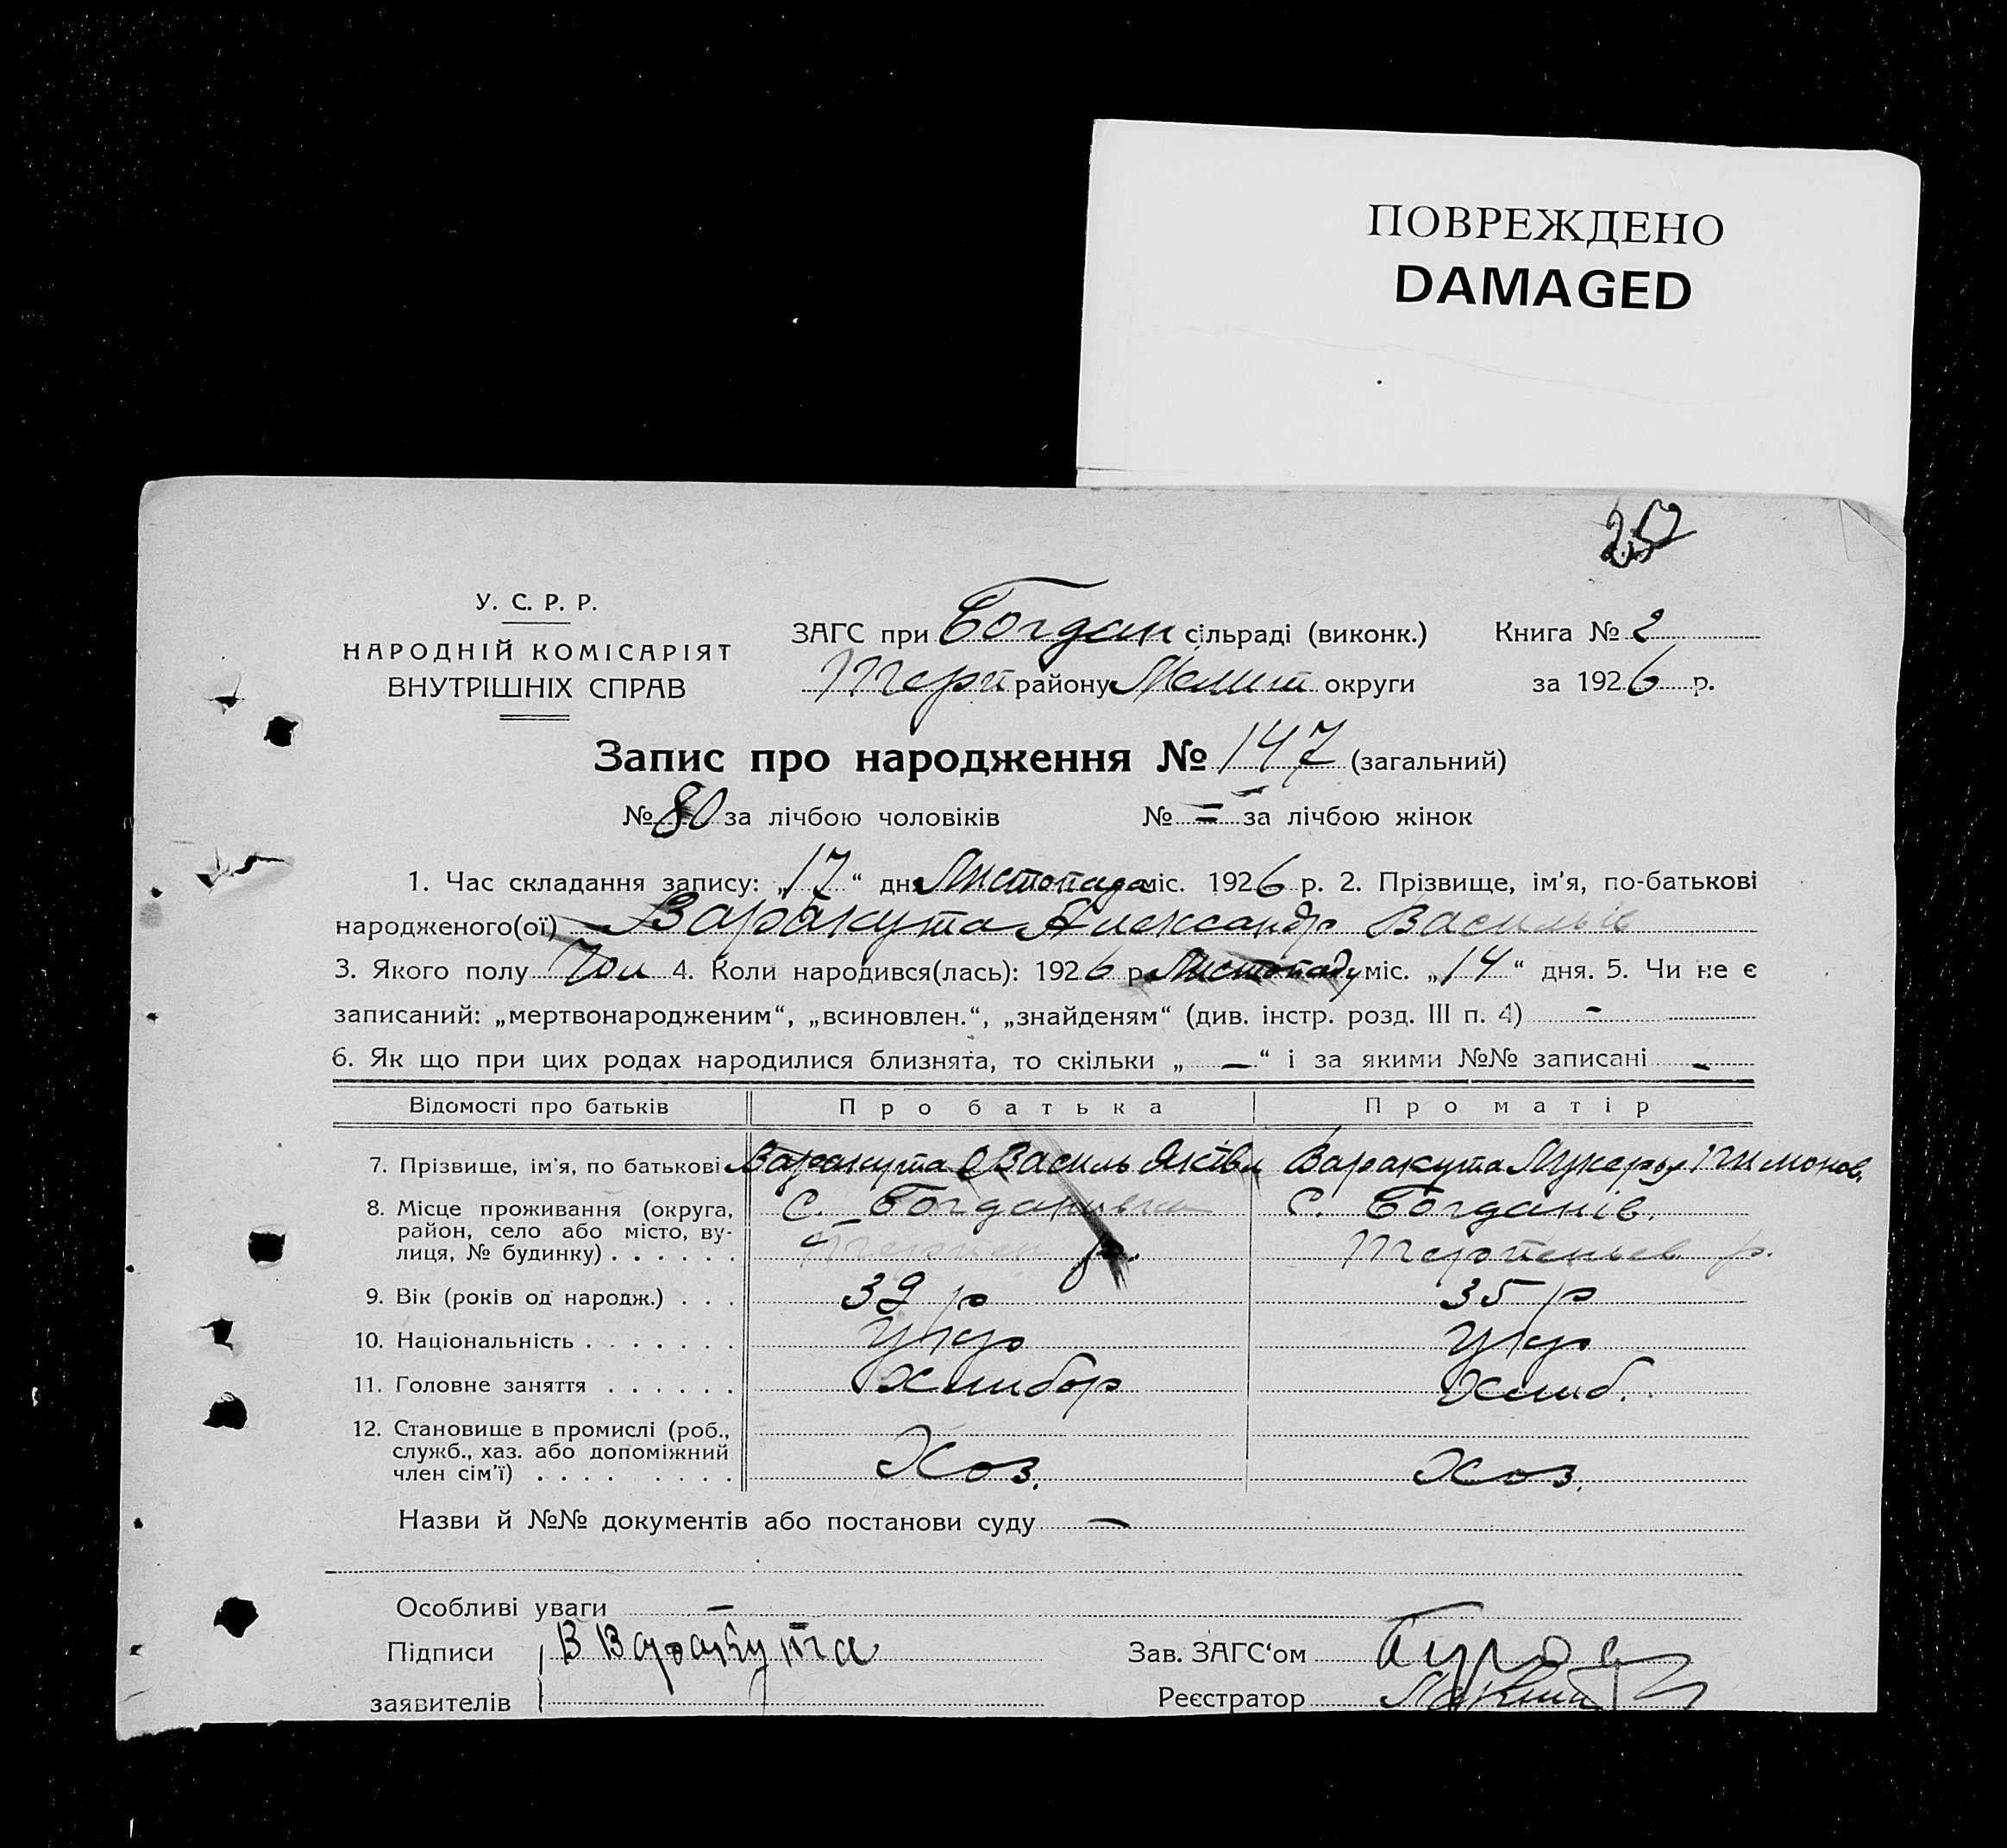 ПОВРЕЖДЕНО
DAMAGED
257
У. С. Р. Р.
НАРОДНІЙ КОМІСАРІЯТ
ВНУТРІШНІХ СПРАВ
ЗАГС при Богдан сільраді (виконк.) Книга № 2
Терп району Меліт округи за 1926 р.
Запис про народження № 147 (загальний)
№ 80 за лічбою чоловіків № = за лічбою жінок
1. Час складання запису: „17“ дня Листопада міс. 1926 р. 2. Прізвище, ім’я, по-батькові
народженого(ої) Варакута Александр Васильів
3. Якого полу Чол 4. Коли народився(лась): 1926 р. Листопаду міс. „14“ дня. 5. Чи не є
записаний: „мертвонародженим“, „всиновлен.“, „знайденям“ (див. інстр. розд. III п. 4) -
6. Як що при цих родах народилися близнята, то скільки „—“ і за якими №№ записані -
Відомості про батьків Про батька Про матір
7. Прізвище, ім’я, по батькові Варакута Василь Яківл Варакута Тимонов.
8. Місце проживання (округа, с. Богданівка с. Богданів.
район, село або місто, ву-
лиця, № будинку) . . . . . . Терпен р. Терпеньев р.
9. Вік (років од народж.) . . . 39 р 35 р
10. Національність . . . . . . . укр укр
11. Головне заняття . . . . . . Хлибор Хлиб.
12. Становище в промислі (роб.,
служб., хаз. або допоміжний
член сім’ї) . . . . . . . . Хоз. Хоз.
Назви й №№ документів або постанови суду —
Особливі уваги —
Підписи В Варакута Зав. ЗАГС‘ом
заявителів Реєстратор